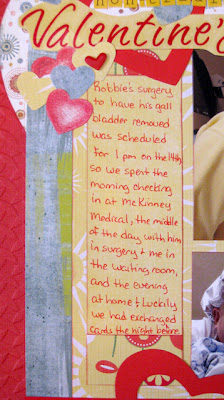 Valentine's
Robbie's surgery
to have his gall
bladder removed
was scheduled
for 1 pm on the 14th
so we spent the
morning checking
in at McKinney
Medical, the middle
of the day with him
in surgery & me in
the waiting room,
and the evening
at home & Luckily
we had exchanged
cards the night before.